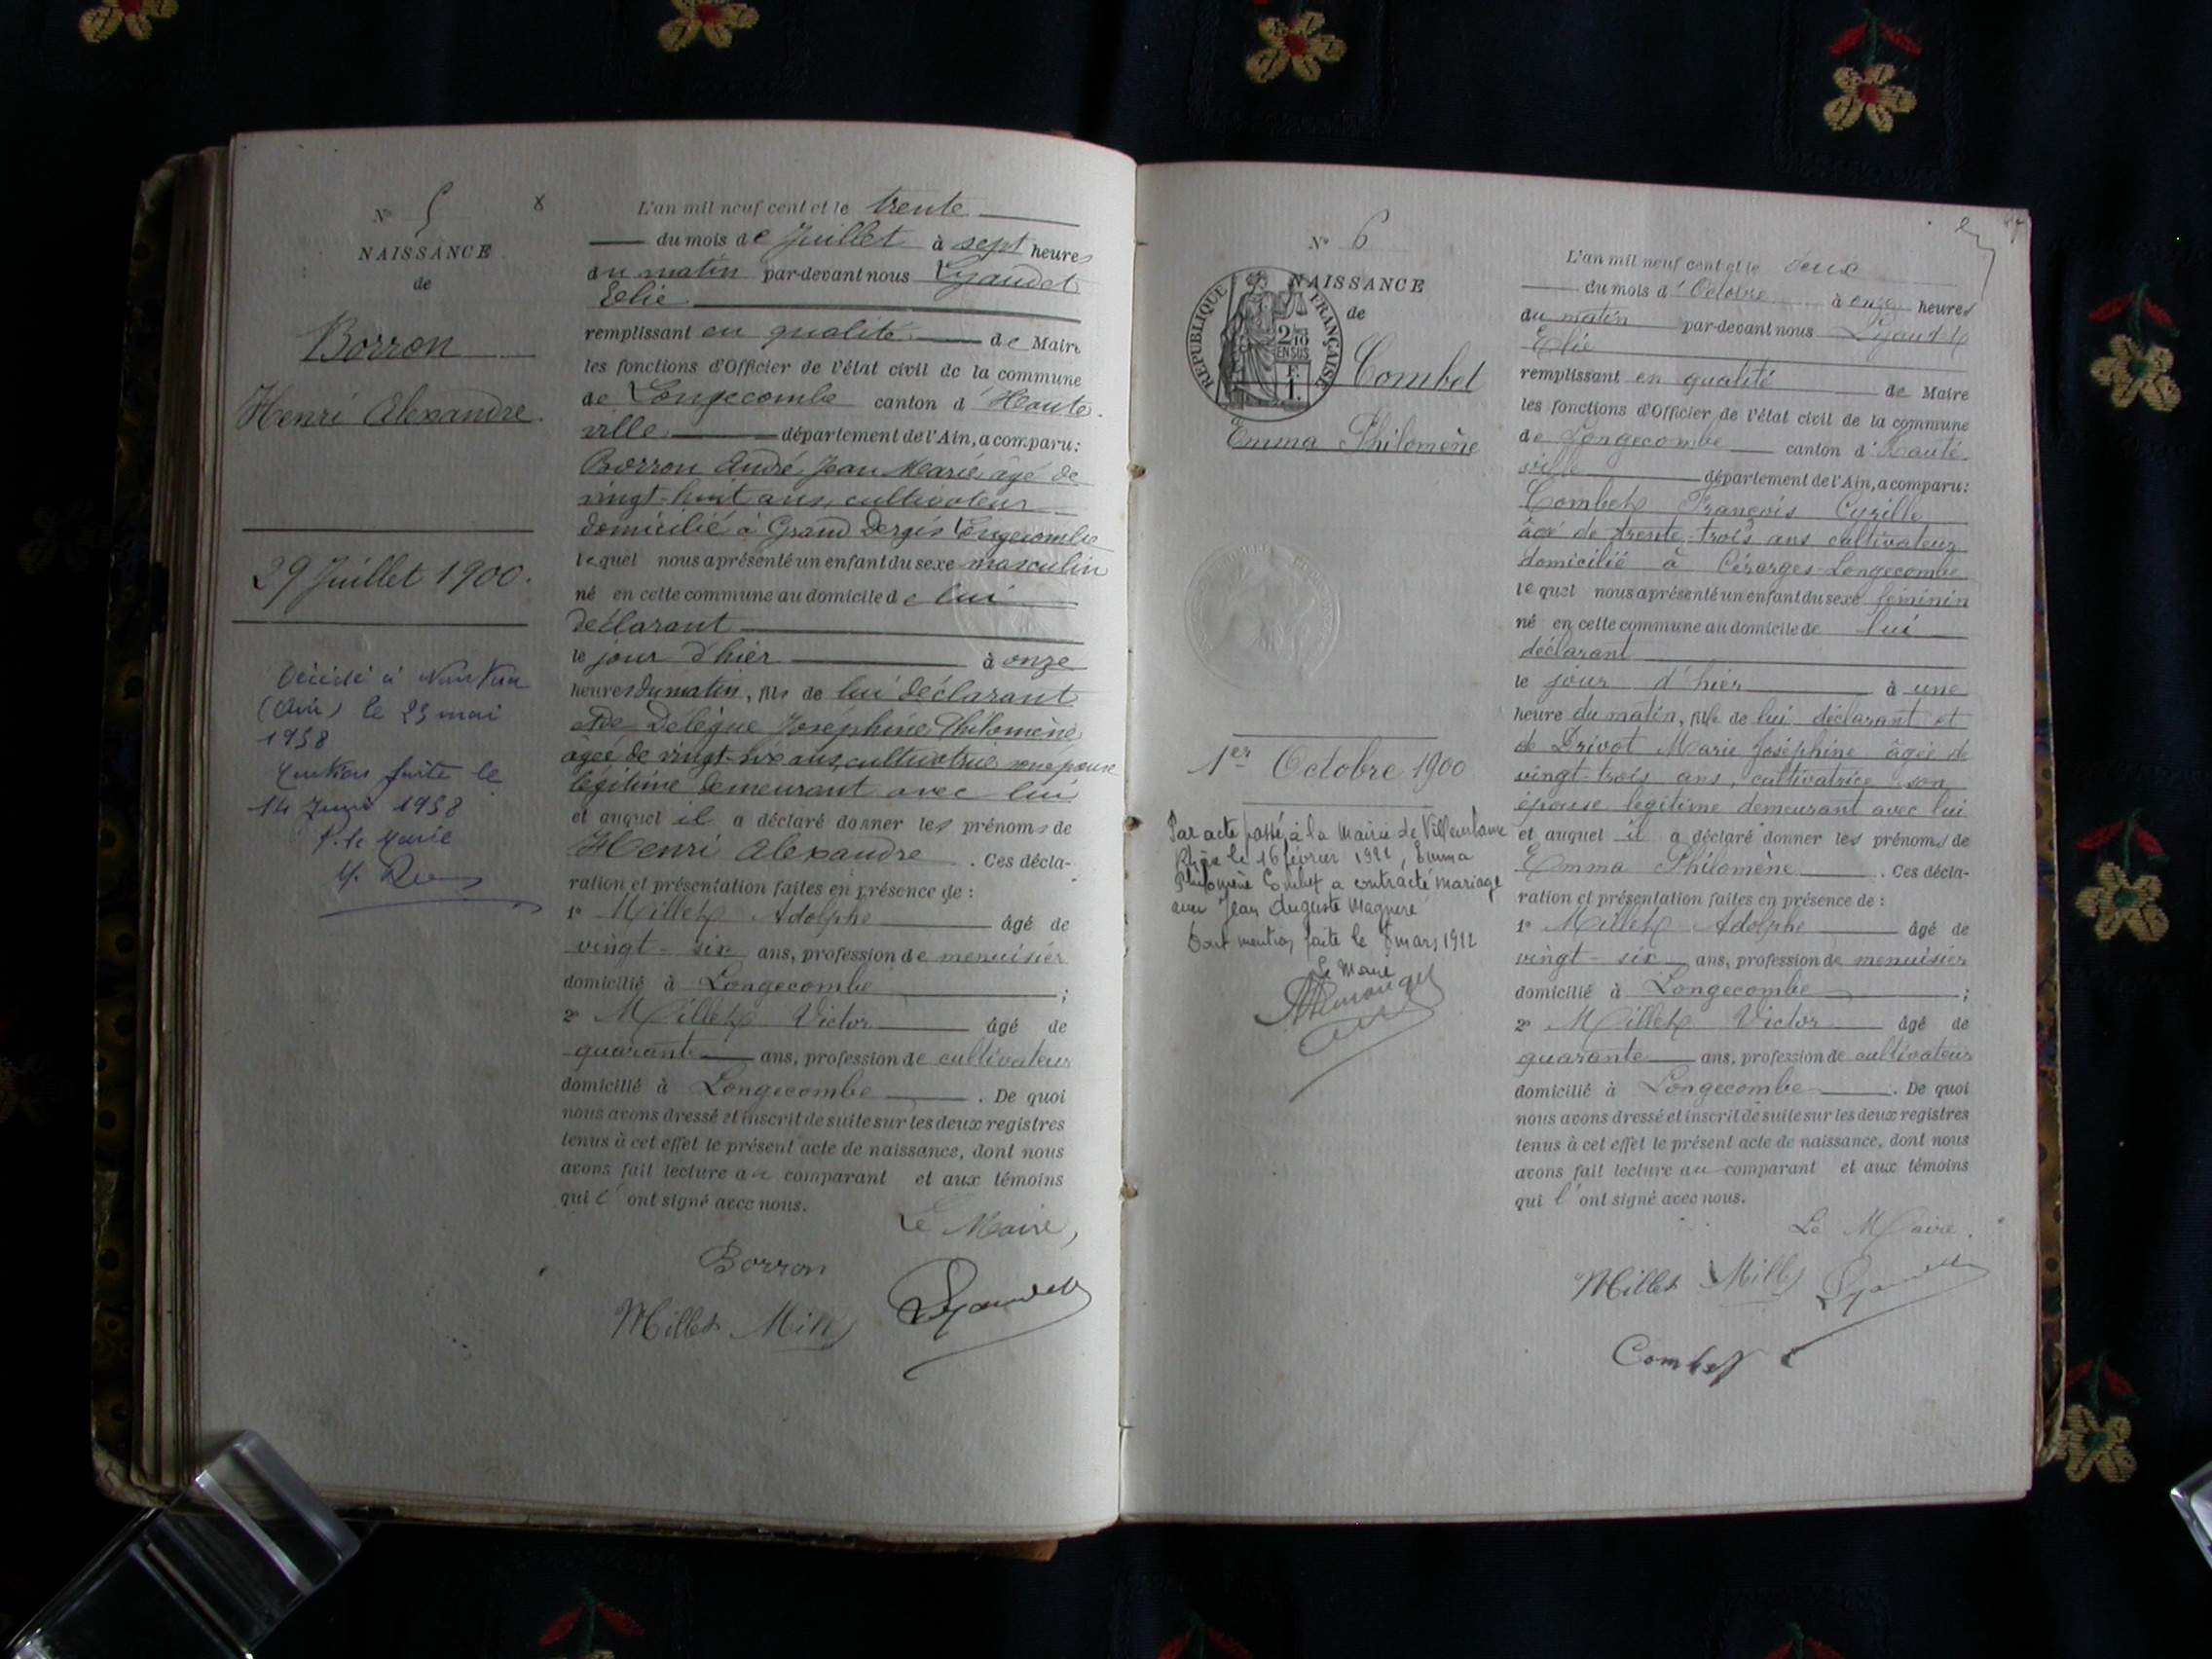 N° 5
NAISSANCE
de
Borron
Henri Alexandre.
29 Juillet 1900.
Décédé à Nantua
(Ain) le 23 mai
1958
Mention faite le
14 Juin 1958
P. le Maire
L'an mil neuf cent et le trente
du mois de Juillet à sept heures
du matin par-devant nous Lyaudet
Elie
remplissant en qualité de Maire
les fonctions d'Officier de l'état civil de la commune
de Longecombe canton d' Haute-
ville département de l'Ain, a comparu:
Borron André Jean Marie âgé de
vingt-huit ans, cultivateur
domicilié à Grand Dergis Longecombe
lequel nous a présenté un enfant du sexe masculin
né en cette commune au domicile de lui
déclarant
le jour d'hier à onze
heures du matin, fils de lui déclarant
et de Délègue Joséphine Philomène
âgée de vingt-six ans, cultivatrice son épouse
légitime demeurant avec lui
et auquel il a déclaré donner les prénoms de
Henri Alexandre . Ces décla-
ration et présentation faites en présence de :
1° Millet Adolphe âgé de
vingt-six ans, profession de menuisier
domicilié à Longecombe ;
2° Millet Victor âgé de
quarante ans, profession de cultivateur
domicilié à Longecombe . De quoi
nous avons dressé et inscrit de suite sur les deux registres
tenus à cet effet le présent acte de naissance, dont nous
avons fait lecture au comparant et aux témoins
qui l' ont signé avec nous.
Le Maire,
Borron
Millet Millet Lyaudet
N° 6
NAISSANCE
de
RÉPUBLIQUE FRANÇAISE
2/10
EN SUS
F.
1.
Combet
Emma Philomène
1er Octobre 1900
Par acte passé à la Mairie de Villeurbanne
Rhône le 16 février 1922, Emma
Philomène Combet a contracté mariage
avec Jean Auguste
Dont mention faite le 8 mars 1922
Le Maire
L'an mil neuf cent et le deux
du mois d' Octobre à onze heures
du matin par-devant nous Lyaudet
Elie
remplissant en qualité de Maire
les fonctions d'Officier de l'état civil de la commune
de Longecombe canton d' Haute-
ville département de l'Ain, a comparu:
Combet François Cyrille
âgé de trente-trois ans cultivateur
domicilié à Longecombe
lequel nous a présenté un enfant du sexe féminin
né en cette commune au domicile de lui
déclarant
le jour d'hier à une
heure du matin, fille de lui déclarant et
de Drivot Marie Joséphine âgée de
vingt-trois ans, cultivatrice son
épouse légitime demeurant avec lui
et auquel il a déclaré donner les prénoms de
Emma Philomène . Ces décla-
ration et présentation faites en présence de :
1° Millet Adolphe âgé de
vingt-six ans, profession de menuisier
domicilié à Longecombe ;
2° Millet Victor âgé de
quarante ans, profession de cultivateur
domicilié à Longecombe . De quoi
nous avons dressé et inscrit de suite sur les deux registres
tenus à cet effet le présent acte de naissance, dont nous
avons fait lecture au comparant et aux témoins
qui l' ont signé avec nous.
Le Maire.
Millet Millet Lyaudet
Combet